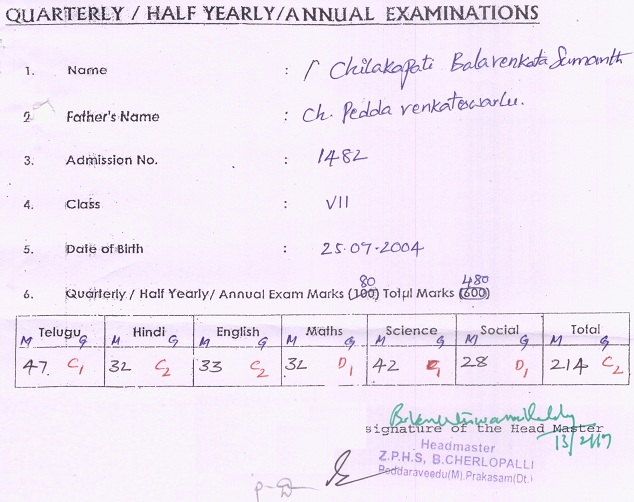 QUARTERLY / HALF YEARLY/ANNUAL EXAMINATIONS
1. Name : Chilakapati Balavenkata Sumanth
2 Father's Name : Ch. Pedda venkateswarlu.
3. Admission No. : 1482
4. Class : VII
5. Date of Birth : 25.09-2004
80 480
6. Quarterly / Half Yearly/ Annual Exam Marks (100) Total Marks (600)
Telugu Hindi English Maths Science Social Total
M G M G M G M G M G M G M G
47 C1 32 C2 33 C2 32 D1 42 C1 28 D1 214 C2
signature of the Head Master
Headmaster
Z.P.H.S, B.CHERLOPALLI
Peddaraveedu(M).Prakasam(Dt.)